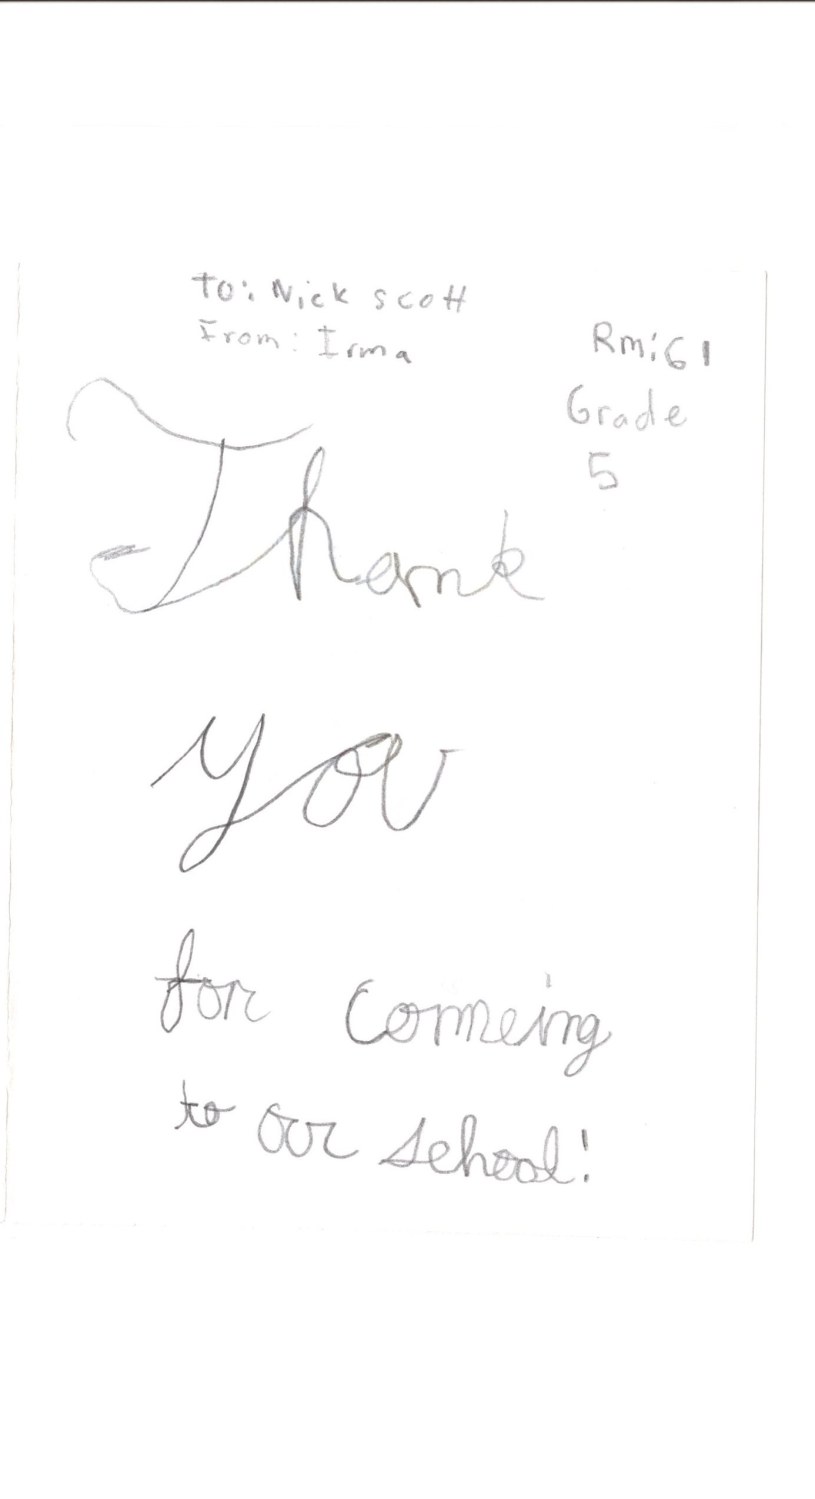 To: Nick Scott
From: Irma
Rm: 61
Grade
5
Thank
you
for Comeing
to our school!